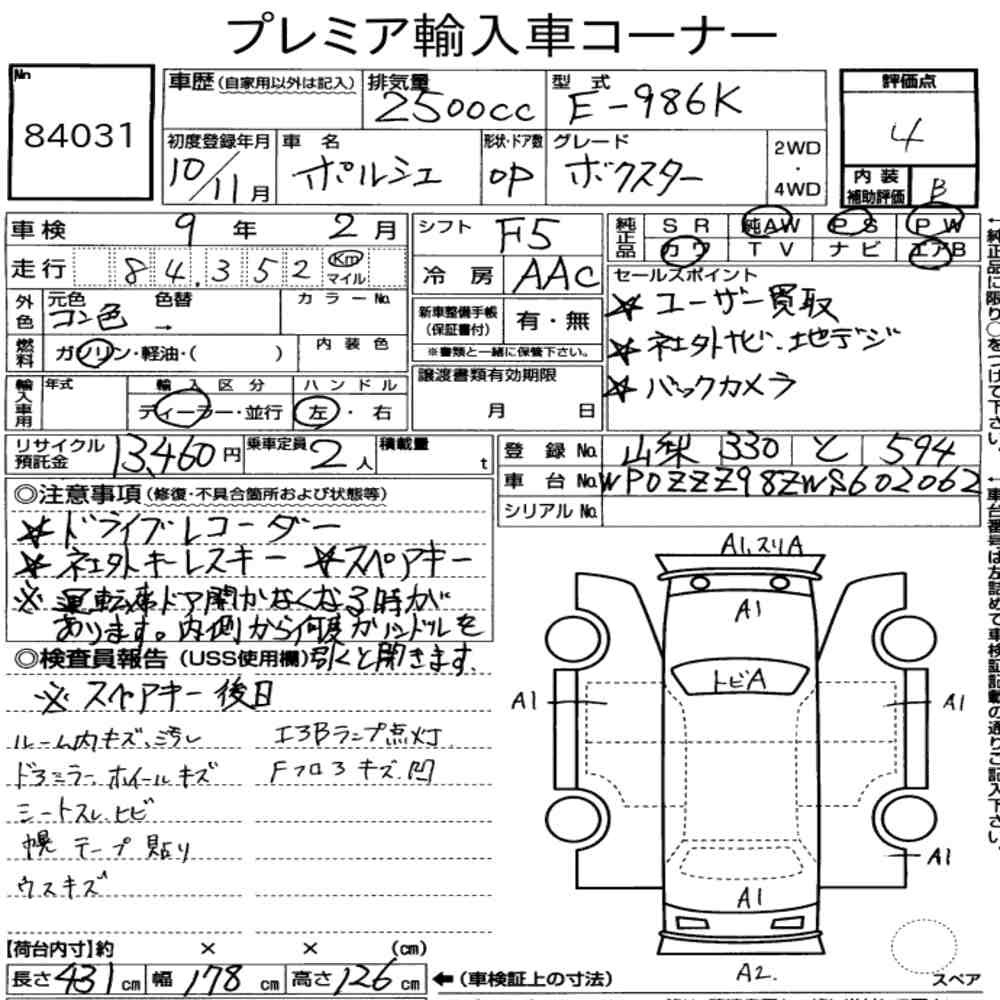 プレミア輸入車コーナー
No 84031
車歴 (自家用以外は記入)
排気量 2500cc
型式 E-986K
評価点 4
初度登録年月 10/11月
車名 ポルシェ
形状・ドア数 OP
グレード ボクスター
2WD・4WD
内装補助評価 B
車検 9年 2月
シフト F5
純正品 SR 純AW PS PW
カワ TV ナビ エアB
走行 84,352 Km マイル
冷房 AAC
セールスポイント
☆ ユーザー買取
☆ 社外ナビ・地デジ
☆ バックカメラ
外色 元色 コン色 色替 → カラーNo.
新車整備手帳(保証書付) 有・無
※書類と一緒に保管下さい。
燃料 ガソリン・軽油・( ) 内装色
譲渡書類有効期限
月 日
輸入車用 年式 輸入区分 ディーラー・並行 ハンドル 左・右
リサイクル預託金 13,460円 乗車定員 2人 積載量 t
登録No. 山梨 330 と 594
車台No. WP0ZZZ98ZWS602062
シリアルNo.
◎注意事項(修復・不具合箇所および状態等)
☆ ドライブレコーダー
☆ 社外キーレスキー ☆スペアキー
※ 運転席ドア開かなくなる時が
あります。内側から何度かハンドルを
引くと開きます。
◎検査員報告 (USS使用欄)
※ スペアキー後日
ルーム内キズ、汚れ エアBランプ点灯
ドアミラー、ホイールキズ Fフロアキズ、凹
シートスレ、ヒビ
幌 テープ貼り
ウスキズ
A1,スリA
A1
トビA
A1 A1
A1
A1
A2
スペア
【荷台内寸】約 × × (cm)
長さ 431 cm 幅 178 cm 高さ 126 cm
←(車検証上の寸法)
←純正品に限り○をつけて下さい。
←車台番号は左詰めで車検証記載の通りご記入下さい。